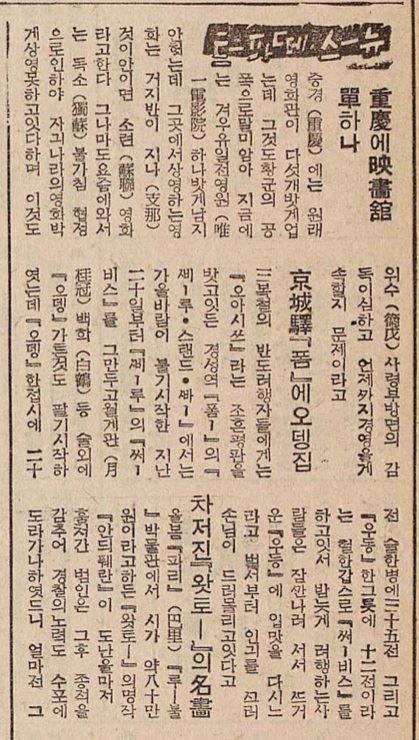 뉴스데파트
重慶에映畫舘
單하나
중경(重慶)에는 원래
영화관이 다섯개밧게업
는데 그것도황군의 공
폭으로말미암아 지금에
는 겨우유일전영원(唯
一電影院)하나밧게남지
안헛는데 그곳에서상영하는영
화는 거지반이 지나(支那)
것이안이면 소련(蘇聯)영화
라고한다 그나마도요즘에와서
는 독소(獨蘇)불가침 협정
으로인하야 자긔나라의영화박
게상영못하고잇다하며 이것도
위수(衛戍)사령부방면의 감
독이심하고 언제까지경영을게
속할지 문제이라고
京城驛『폼』에오뎅집
삼복철의 반도려행자들에게는
『오아시쓰』라는 조흔평판을
밧고잇든 경성역『폼』의『
삐ー루•스탠드•빠ー』에서는
가을바람이 불기시작한 지난
二十일부터『삐ー루』의『써ー
비스』를 그만두고월게관(月
桂冠)백학(白鶴)등 술외에
『오뎅』가튼것도 팔기시작하
엿는데『오뎅』한접시에 二十
전 술한병에三十五전 그리고
『우동』한그릇에 十二전이라
는 헐한갑스로『써ー비스』를
하고잇서 밤늦게 려행하는사
람들은 잠깐나려 서서 뜨거
운『우동』에 입맛을 다시느
라고 벌서부터 인긔를 끄러
손님이 드러몰리고잇다고
차저진『왓토ー』의名畵
올봄『파리』(巴里)『루ー불
』박물관에서 시가 약八十만
원이라고하든『왓토ー』의명작
이 도난을마저
훔처간 범인은 그후 종적을
감추어 경찰의노력도 수포에
도라가나하엿드니 얼마전 그